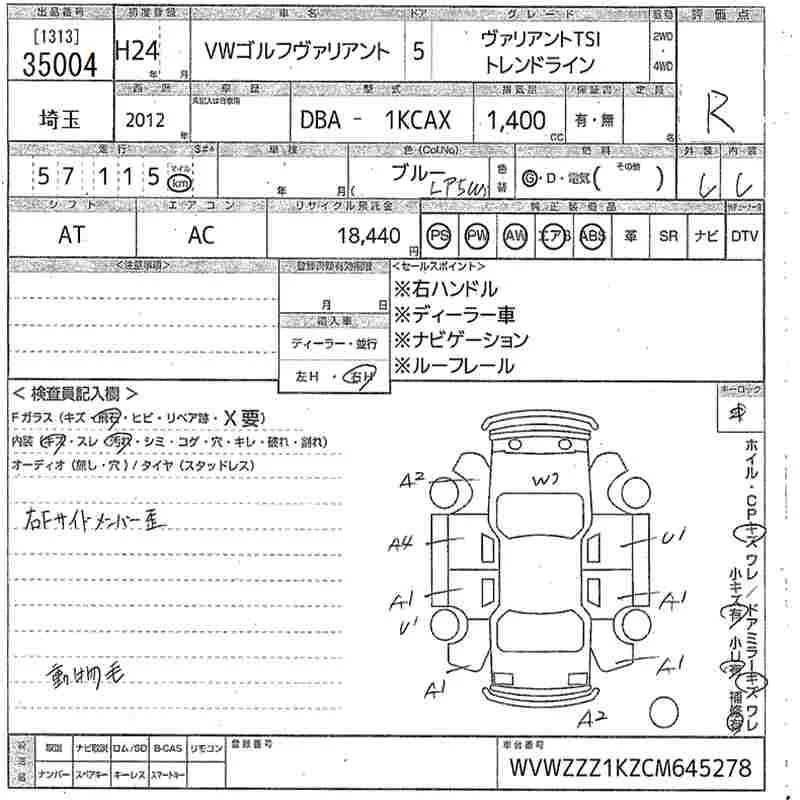 出品番号 初度登録 車名 ドア グレード 駆動 評価点
[1313]
35004 H24 年 月 VWゴルフヴァリアント 5 ヴァリアントTSI
トレンドライン 2WD 4WD R
西暦 車歴 型式 排気量 保証書 定員
未記入は自家用
埼玉 2012 年 DBA - 1KCAX 1,400 cc 有・無 名
走行 車検 色(Col.No) 色替 燃料 外装 内装
57,115 マイル km 年 月( ブルー LP5W Ⓖ・D・電気( その他 )
シフト エアコン リサイクル預託金 純正装備品
AT AC 18,440 円 PS PW AW エアB ABS 革 SR ナビ DTV
<注意事項> 登録書類有効期限 <セールスポイント>
月 日
※右ハンドル
※ディーラー車
※ナビゲーション
※ルーフレール
輸入車
ディーラー・並行
左H・右H
< 検査員記入欄 >
Fガラス (キズ・飛石・ヒビ・リペア跡・X要)
内装 (キズ・スレ・汚れ・シミ・コゲ・穴・キレ・破れ・割れ)
オーディオ (無し・穴) / タイヤ (スタッドレス)
右Fサイドメンバー歪
動物毛
ホーローック
ホイル・CPキズ ワレ / ドアミラーキズ ワレ
小キズ有 小U有 補修有
A2
W2
A4
U1
A1
A1
U1
A1
A1
A2
取説 ナビ取説 ロム/SD B-CAS リモコン
ナンバー スペアキー キーレス スマートキー
登録番号
車台番号
WVWZZZ1KZCM645278